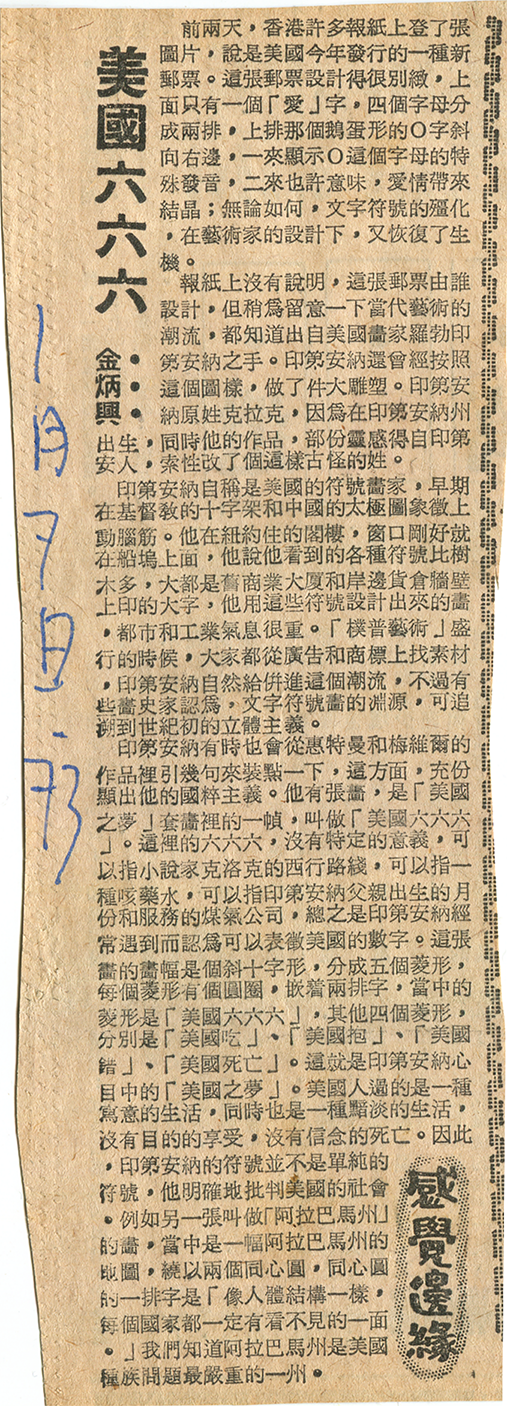 美國六六六
金炳興
前兩天，香港許多報紙上登了張
圖片，說是美國今年發行的一種新
郵票。這張郵票設計得很別緻，上
面只有一個「愛」字，四個字母分
成兩排，上排那個鵝蛋形的O字斜
向右邊，一來顯示O這個字母的特
殊發音，二來也許意味，愛情的帶來
結晶；無論如何，文字符號的殭化
，在藝術家的設計下，又恢復了生
機。
報紙上沒有說明，這張郵票由誰
設計，但稍為留意一下當代藝術的
潮流，都知道出自美國畫家羅勃印
第安納之手。印第安納還曾經按照
這個圖樣，做了件大雕塑。印第安
納原姓克拉克，因為在印第安納州
出生，同時他的作品，部份靈感得自印第
安人，索性改了個這樣古怪的姓。
印第安納自稱是美國的符號畫家，早期
在基督教的十字架和中國的太極圖象徵上
動腦筋。他在紐約住的閣樓，窗口剛好就
在船塢上面，他說他看到的各種符號比樹
木多，大都是舊商業大厦和岸邊貨倉牆壁
上印的大字，他用這些符號設計出來的畫
，都市和工業氣息很重。「樸普藝術」盛
行的時候，大家都從廣告和商標上找素材
，印第安納自然給併進這個潮流，不過有
些畫史家認為，文字符號畫的淵源，可追
溯到世紀初的立體主義。
印第安納有時也會從惠特曼和梅維爾的
作品裡引幾句來裝點一下，這方面，充份
顯出他的國粹主義。他有張畫，是「美國
之夢」套畫裡的一幀，叫做「美國六六六
」。這裡的六六六，沒有特定的意義，可
以指小說家克洛克的西行路綫，可以指一
種咳藥水，可以指印第安納父親出生的月
份和服務的煤氣公司，總之是印第安納經
常遇到而認為可以表徵美國的數字。這張
畫的畫幅是個斜十字形，分成五個菱形，
每個菱形有個圓圈，嵌着兩排字，當中的
菱形是「美國六六六」，其他四個菱形，
分別是「美國吃」、「美國抱」、「美國
錯」、「美國死亡」。這就是印第安納心
目中的「美國之夢」。美國人過的是一種
寫意的生活，同時也是一種黯淡的生活，
沒有目的的享受，沒有信念的死亡。因此
，印第安納的符號並不是單純的
符號，他明確地批判美國的社會
。例如另一張叫做「阿拉巴馬州」
的畫，當中是一幅阿拉巴馬州的
地圖，繞以兩個同心圓，同心圓
的一排字是「像人體結構一樣，
每個國家都一定有看不見的一面
。」我們知道阿拉巴馬州是美國
種族問題最嚴重的一州。
感覺邊緣
1月7日